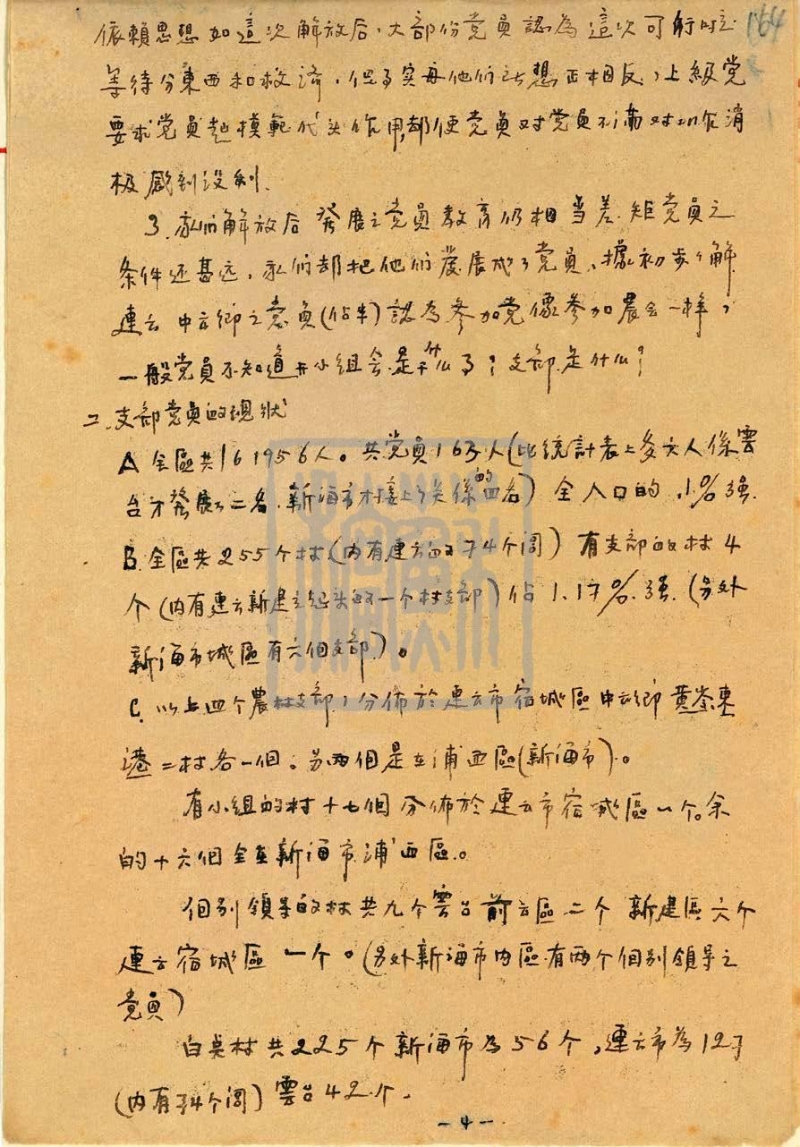 164
依賴思想如這次解放后，大部份党員認為這次可行
等待分東西和救済，但事实母他們的想正相反，上級党
要求党員起模範代头作用，部使党員对党員不滿对工作消
极感到没利.
3. 我們解放后發展之党員教育仍相当差.距党員之
条件还甚远，我們却把他們發展成了党員，據初步了解
連云 中云鄉之党員(佔半)認為参加党像参加農会一样，
一般党員不知道开小組会是干什么了？支部是什么？
二.支部党員的現狀
A 全區共161956人。共党員163人(比統計表上多六人係雲
台才發展了二名.新海市接上了关係的四名) 全人口的.1%强.
B.全區共255个村(内有連云的 74个閭) 有支部的村4
个(内有連云新建之起头的一个村支部)佔1.17%强.(另外
新海市城區有六個支部)。
C.以上四个農村支部，分佈於連云市宿城區中云鄉黄崇東
港二村各一個。另兩個是在浦西區(新海市)。
有小組的村十七個分佈於連云市宿城區一个。余
的十六個全在新海市浦西區。
個别領导的村共九个雲台前云區二个 新建區六个
連云宿城區一个。(另外新海市内區有兩个個别領导之
党員)
白点村共225个新海市為56个，連云市為127
(内有74个閭)雲台42个.
-4-